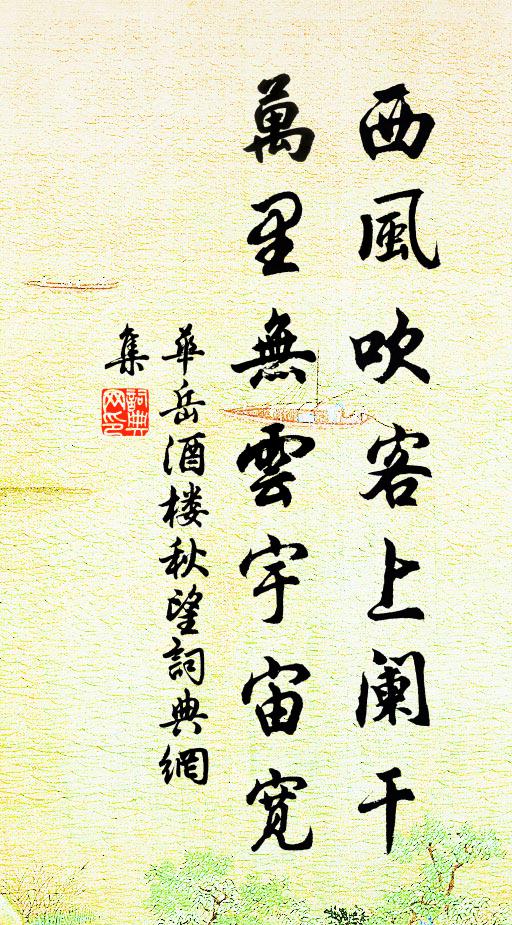 西風吹客上阑干
萬里無雲宇宙寬
華岳酒楼秋望詞典網
集
詞典
网印